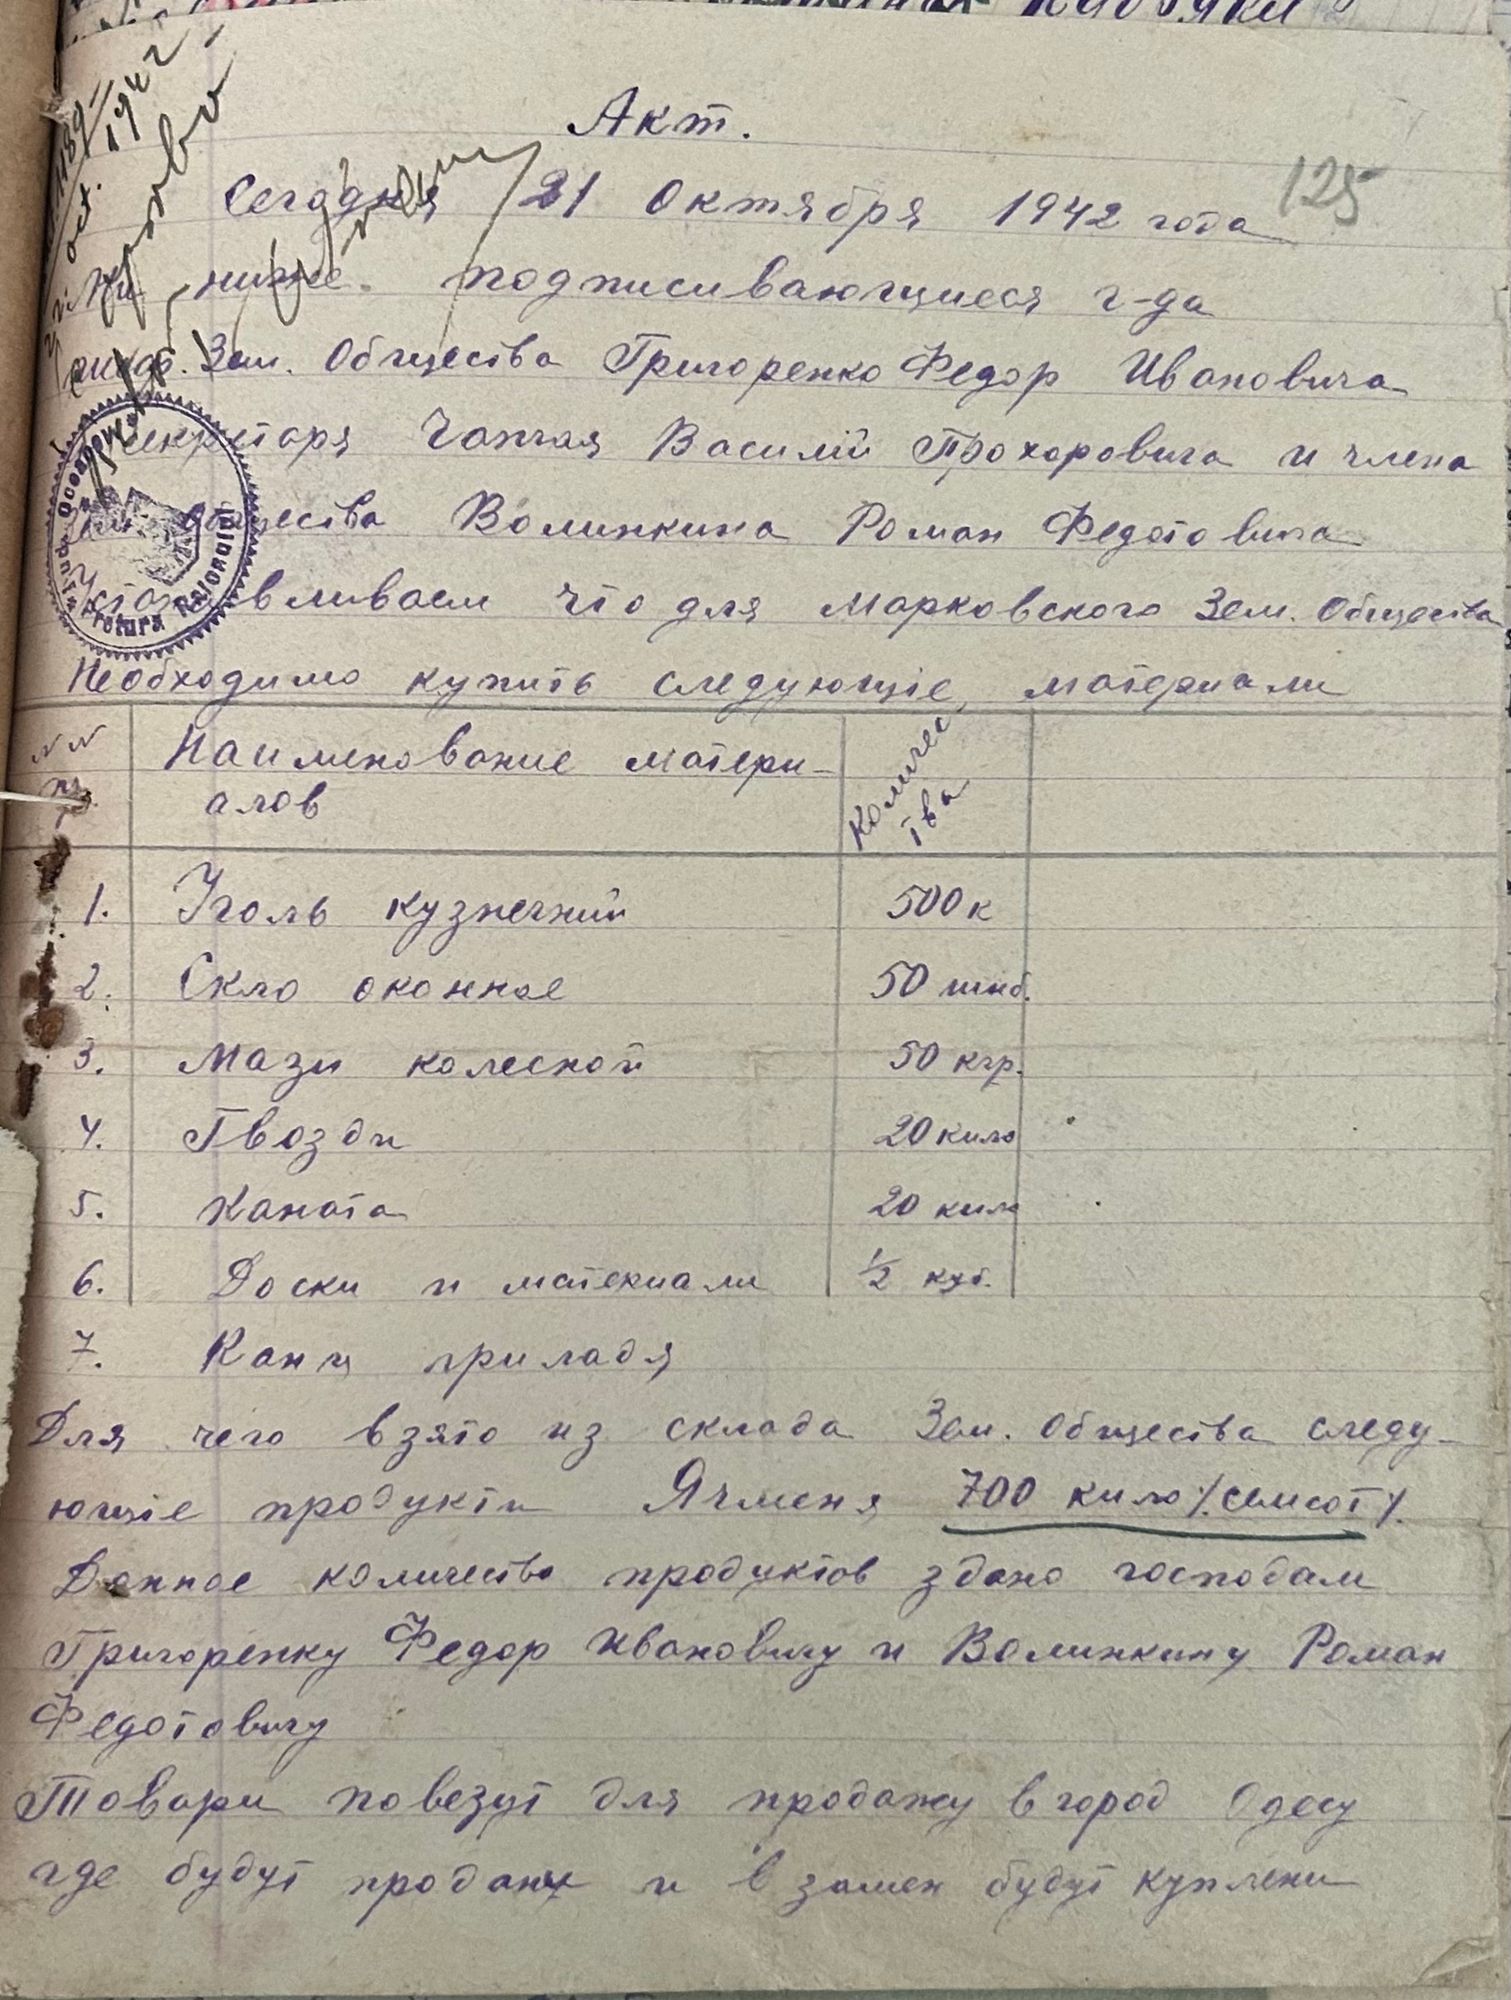 Акт.
125
Сегодня 21 Октября 1942 года
Ми ниже подписивающиеся г-да
Зем. Общества Григоренко Федор Ивановича
секретаря Василий Прохоровича и члена
Зем общества Волинкина Роман Федотовича
Устанавливаем что для Марковского Зем. Общества
Необходимо купить следующіе материали
NN пп. Наименование матери-
алов
Количес
тва
1. Уголь кузнечний 500 к
2. Скло оконное 50 шиб.
3. Мази колесной 50 кгр.
4. Гвозди 20 кило
5. Каната 20 кило
6. Доски и материали 1/2 куб.
7. Канц приладя
Для чего взято из склада Зем. Общества следу-
ющіе продукти Ячменя 700 кило /.семсот/.
Данное количество продуктов здано господам
Григоренку Федор Ивановичу и Волинкину Роман
Федотовичу
Товари повезут для продажу в город Одесу
где будут продани и в замен будут куплени
1189
oct. 1942
Pretura Raionului